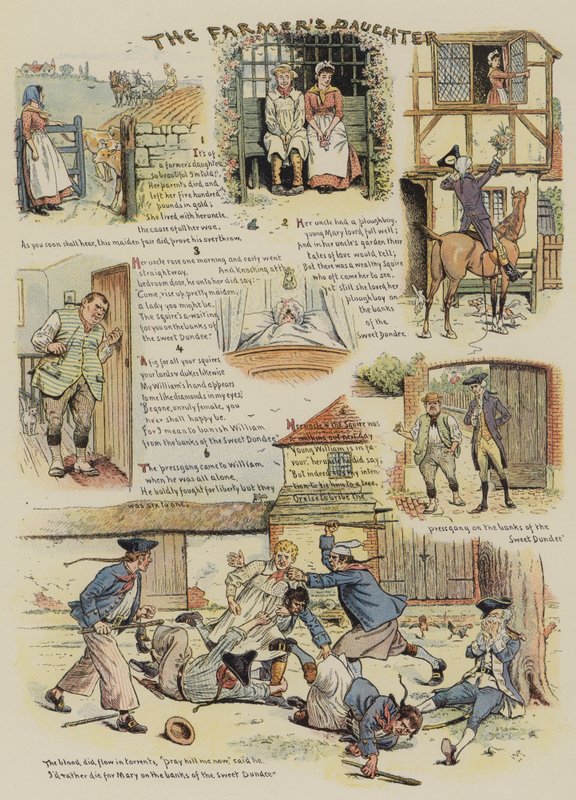 THE FARMER'S DAUGHTER
It's of
a farmer's daughter,
so beautiful I'm told,
Her parents died, and
left her five hundred
pounds in gold;
She lived with her uncle,
the cause of all her woe,
As you soon shall hear, this maiden fair did prove his overthrow.
2 Her uncle had a ploughboy,
young Mary loved full well;
And in her uncle's garden, their
tales of love would tell;
But there was a wealthy Squire
who oft came her to see,
Yet still she loved her
ploughboy on
the banks
of the
Sweet Dundee.
3
Her uncle rose one morning and early went
straightway,
And Knocking at her
bedroom door, he unto her did say:
"Come, rise up, pretty maiden,
a lady you might be,
The squire's a-waiting
for you on the banks of
the Sweet Dundee."
4
"A fig for all your squires,
your lords & dukes likewise
My William's hand appears
to me like diamonds in my eyes;"
"Begone, unruly female, you
ne'er shall happy be,
For I mean to banish William
from the banks of the Sweet Dundee"
5
Her uncle & the Squire was
a-walking out next day
"Young William is in fa-
vour", her uncle he did say,
"But indeed 'tis my inten-
tion to tie him to a tree,
Or else to bribe the
pressgang on the banks of the
Sweet Dundee"
6
The pressgang came to William
when he was all alone,
He boldly fought for liberty but they
was six to one;
The blood did flow in torrents, "pray kill me now", said he,
"I'd rather die for Mary on the banks of the Sweet Dundee"